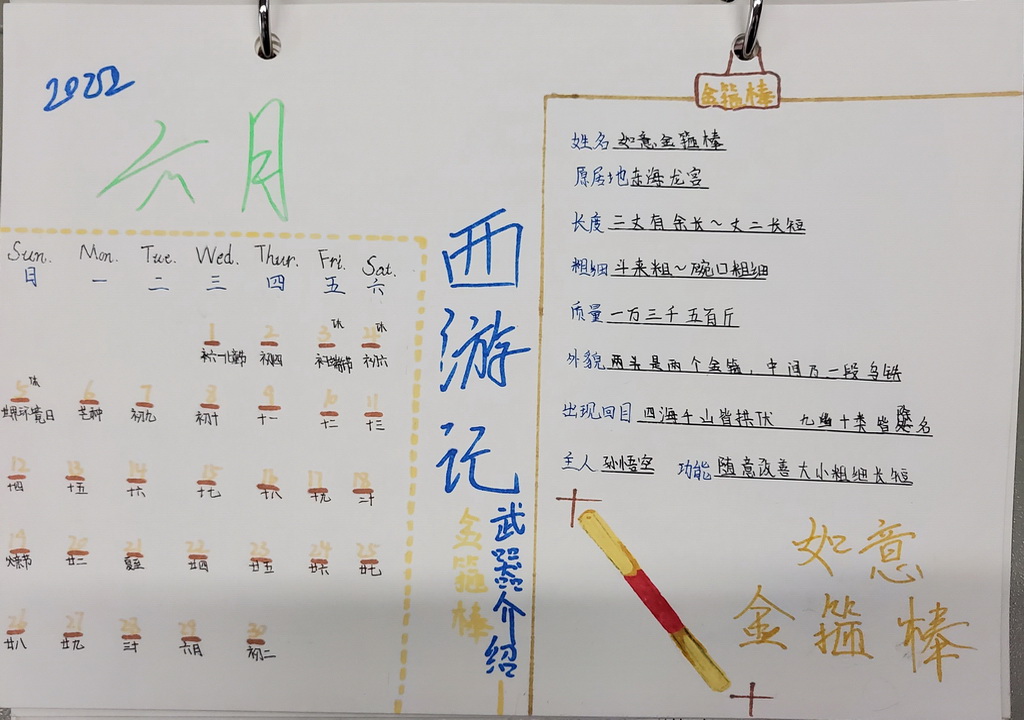 2022
六月
Sun. Mon. Tue. Wed. Thur. Fri. Sat.
日 一 二 三 四 五 六
1 2 3 休 4 休
初四 初六
5 休 6 7 8 9 10 11
世界环境日 芒种 初九 初十 十一 十二 十三
12 13 14 15 16 17 18
十四 十五 十六 十七 十八 十九 二十
19 20 21 22 23 24 25
廿二 夏至 廿四 廿五 廿六 廿七
26 27 28 29 30
廿八 廿九 三十 六月 初二
西游记
武器介绍
金箍棒
金箍棒
姓名 如意金箍棒
原居地 东海龙宫
长度 二丈有余长~丈二长短
粗细 斗来粗~碗口粗细
质量 一万三千五百斤
外貌 两头是两个金箍，中间乃一段乌铁
出现回目 四海千山皆拱伏 九幽十类皆除名
主人 孙悟空 功能 随意改善大小粗细长短
如意
金箍棒